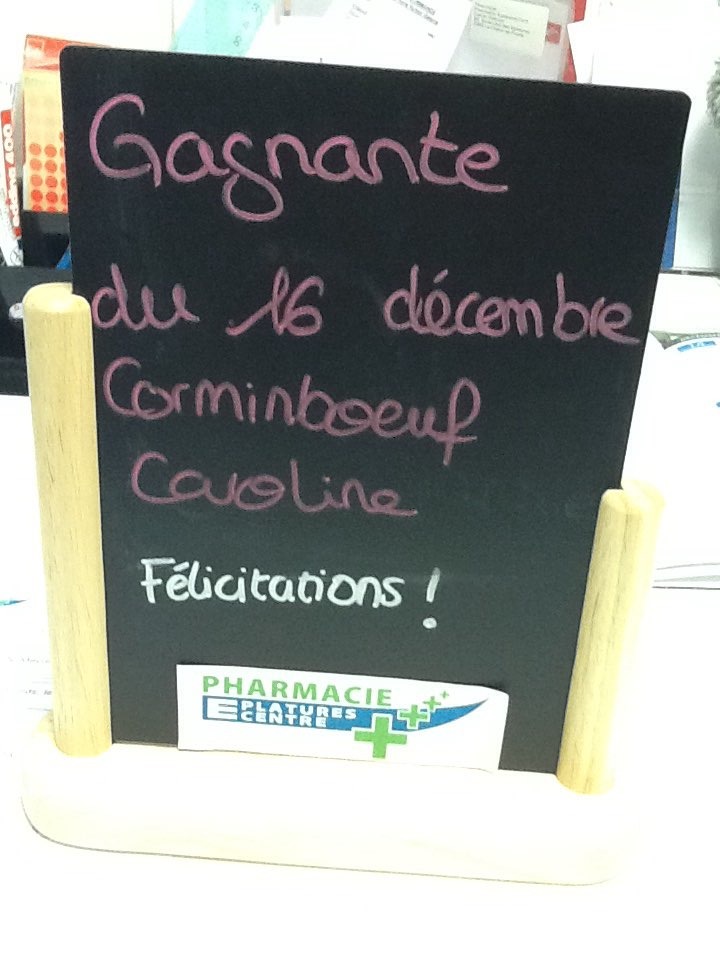 Gagnante
du 16 décembre
Corminboeuf
Caroline
Félicitations !
PHARMACIE
EPLATURES
CENTRE